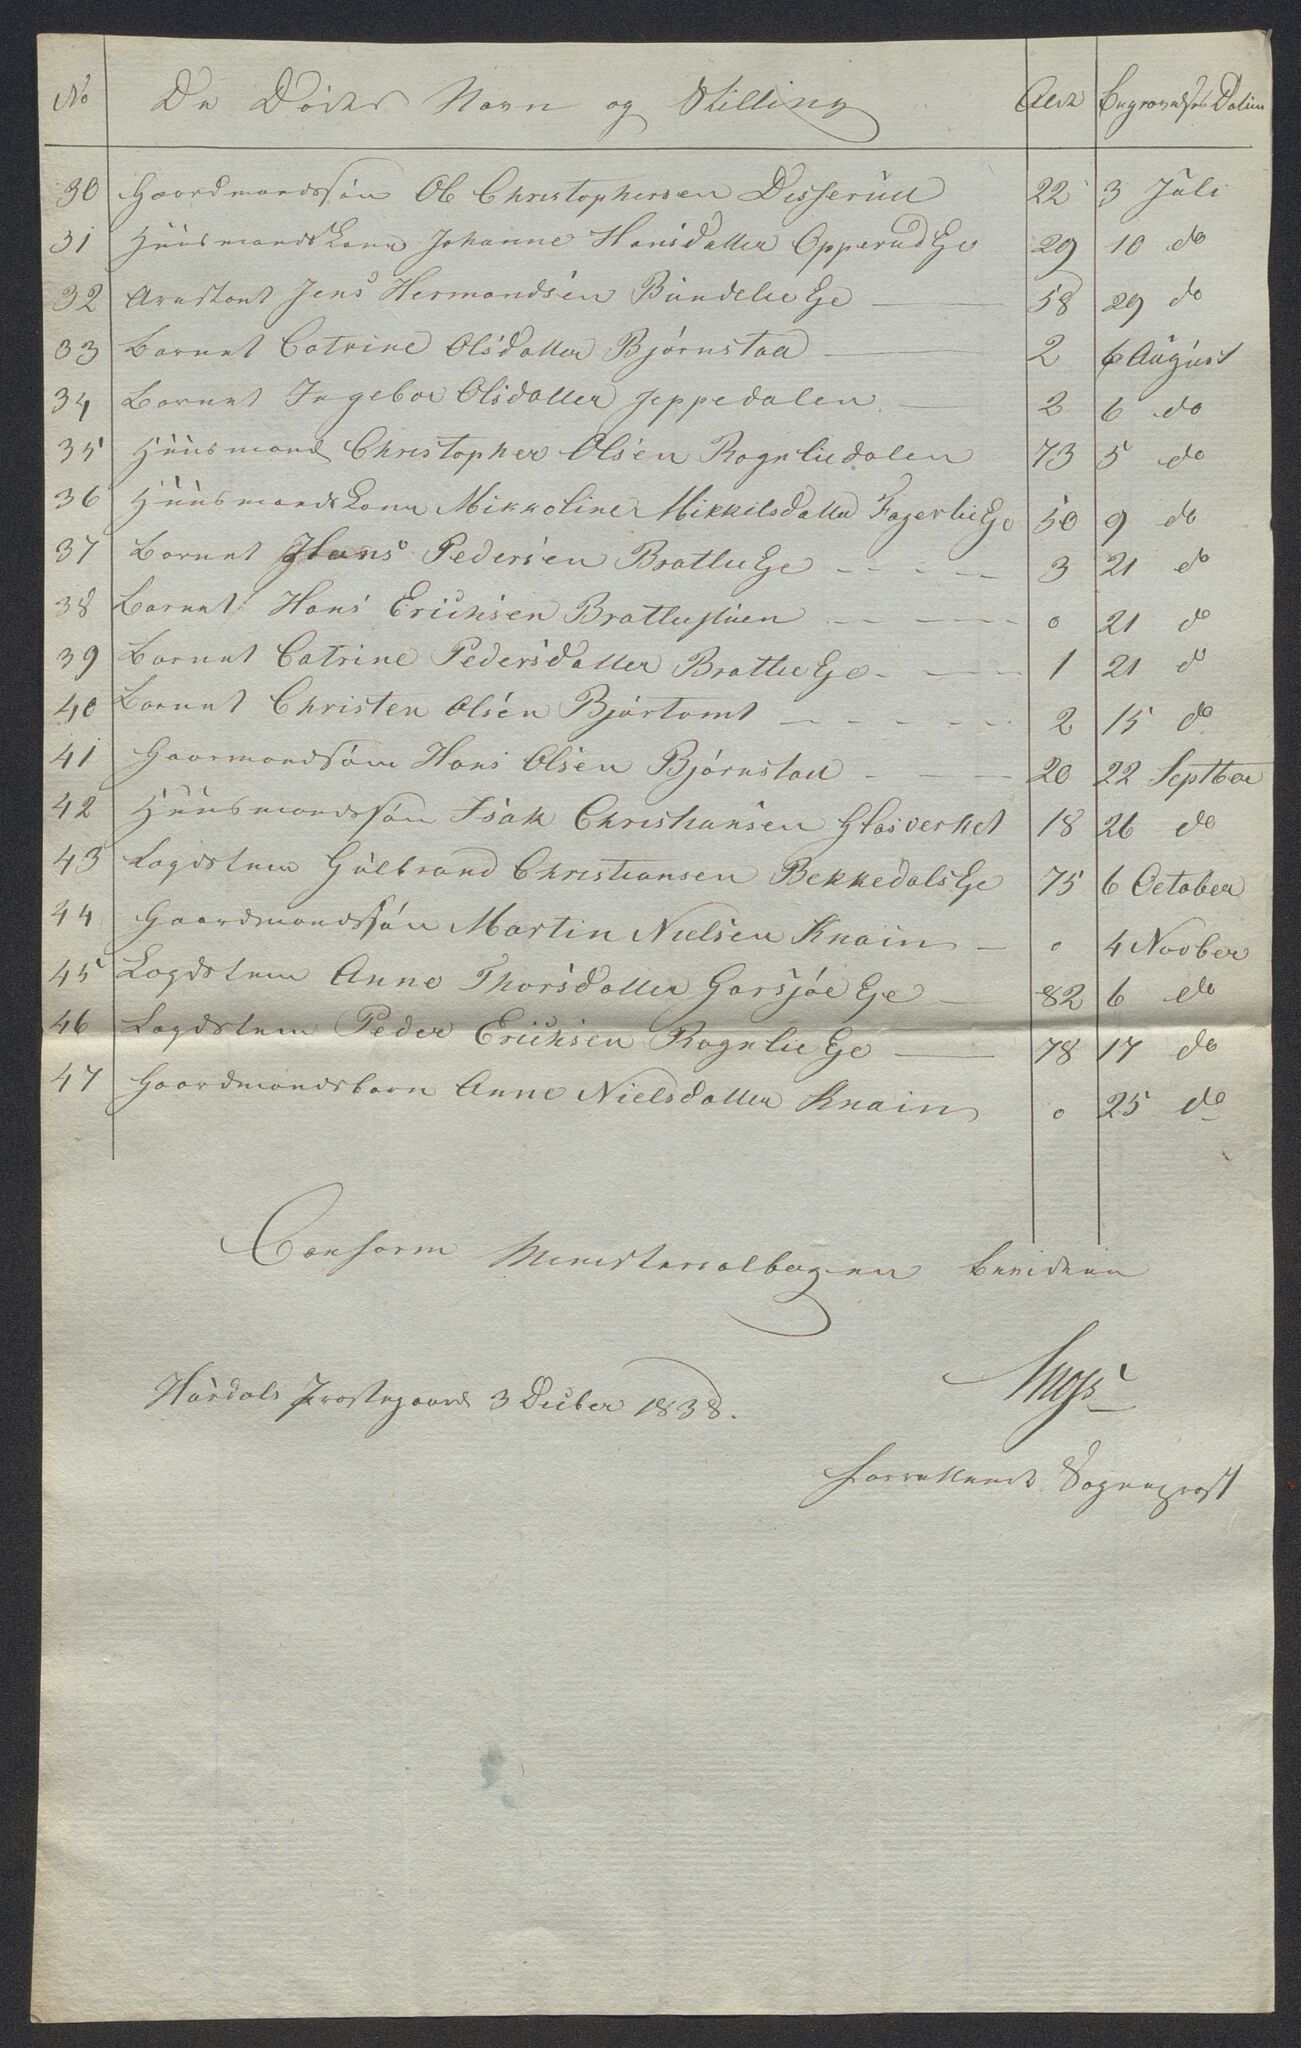 No De Dødes Navn og Stilling Alder Begravelses Datum
30 Gaardmandssøn Ole Christophersen Disserud 22 3 Juli
31 Huusmandskone Johanne Hansdatter Opperud Eje 29 10 do
32 Arrestant Jens Hermandsen Bundelie Eje 58 29 do
33 Barnet Catrine Olsdatter Bjørnstad 2 6 August
34 Barnet Ingebor Olsdatter Jeppedalen 2 6 do
35 Huusmand Christopher Olsen Rognliedalen 73 5 do
36 Huusmandskone Mikkoline Mikkilsdatter Fagerlie Eje 50 9 do
37 Barnet Hans Pedersen Bratlie Eje 3 21 do
38 Barnet Hans Erichsen Bratliestuen 0 21 do
39 Barnet Catrine Pedersdatter Bratlie Eje 1 21 do
40 Barnet Christen Olsen Bjørtomt 2 15 do
41 Gaarmandsøn Hans Olsen Bjørnstad 20 22 Septber
42 Huusmandssøn Isak Christiansen Glasverket 18 26 do
43 Lagdslem Gulbrand Christiansen Bekkedals Eje 75 6 October
44 Gaardmandssøn Martin Nielsen Knain 0 4 Novber
45 Lagdslem Anne Thorsdatter Garsjøe Eje 82 6 do
46 Lagdslem Peder Erichsen Rognlie Eje 78 17 do
47 Gaardmandsbarn Anne Nielsdatter Knain 0 25 do
Conform Ministerialbogen bevidner
Hurdals Præstegaard 3 Decber 1838.
forrettende Sogneprest